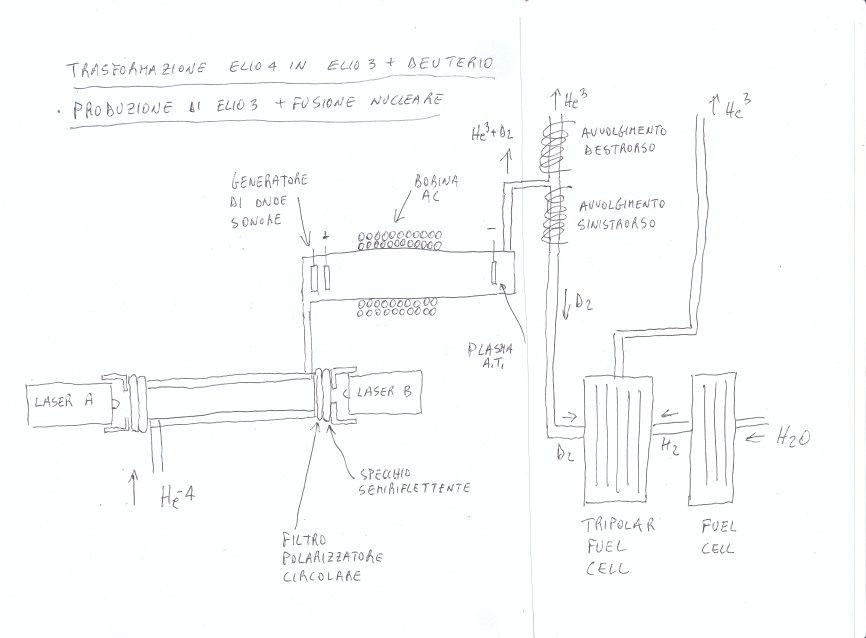 TRASFORMAZIONE ELIO4 IN ELIO3 + DEUTERIO
· PRODUZIONE DI ELIO3 + FUSIONE NUCLEARE
He³
He³
He³+D2
AVVOLGIMENTO
DESTRORSO
GENERATORE
DI ONDE
SONORE
BOBINA
AC
AVVOLGIMENTO
SINISTRORSO
+
-
D2
PLASMA
A.T.
LASER A
LASER B
He-4
SPECCHIO
SEMIRIFLETTENTE
FILTRO
POLARIZZATORE
CIRCOLARE
D2
H2
H2O
TRIPOLAR
FUEL
CELL
FUEL
CELL